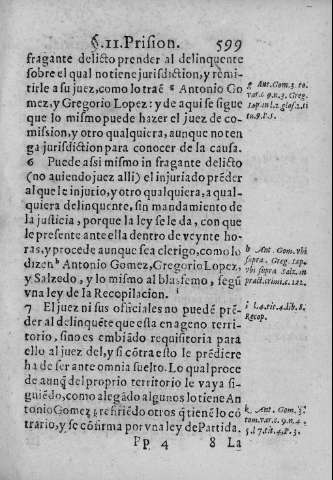 §.11.Prision. 599
fragante delicto prender al delinquente
sobre el qual no tiene jurisdiction, y remi-
tirle a su juez, como lo traẽ g Antonio Go
mez, y Gregorio Lopez: y de aqui se sigue
que lo mismo puede hazer el juez de co-
mission, y otro qualquiera, aunque no ten
ga jurisdiction para conocer de la causa.
6 Puede assi mismo in fragante delicto
(no auiendo juez alli) el injuriado prẽder
al que le injurio, y otro qualquiera, a qual-
quiera delinquente, sin mandamiento de
la justicia, porque la ley se le da, con que
le presente ante ella dentro de veynte ho-
ras, y procede aunque sea clerigo, como lo
dizen h Antonio Gomez, Gregorio Lopez,
y Salzedo, y lo mismo al blasfemo, segũ
vna ley de la Recopilacion. i
7 El juez ni sus oficiales no puedẽ prẽ-
der al delinquẽte que esta en ageno terri-
torio, sino es embiãdo requisitoria para
ello al juez del, y si cõtra esto le prẽdiere
ha de ser ante omnia suelto. Lo qual proce
de aunq̃ del proprio territorio le vaya si-
guiẽdo, como alegado algunos lo tiene An
tonio Gomez k refiriẽdo otros q̃ tienẽ lo cõ
trario, y se cõfirma por vna ley de Partida.
Pp 4 8 La
g Ant. Gom. 3. to.
var. c. 9. n. 3. Greg.
Lop. in l. 2. glos. 2. ti
to. 9. P. 5.
h Ant. Gom. vbi
supra. Greg. Lop.
vbi supra Salz. in
pract. crimi. c. 122.
i l. 4. tit. 4. lib. 8.
Recop.
k. Ant. Gom. 3.
tom. var. c. 9. n. 4.
5. l 7. tit. 4. P. 3.